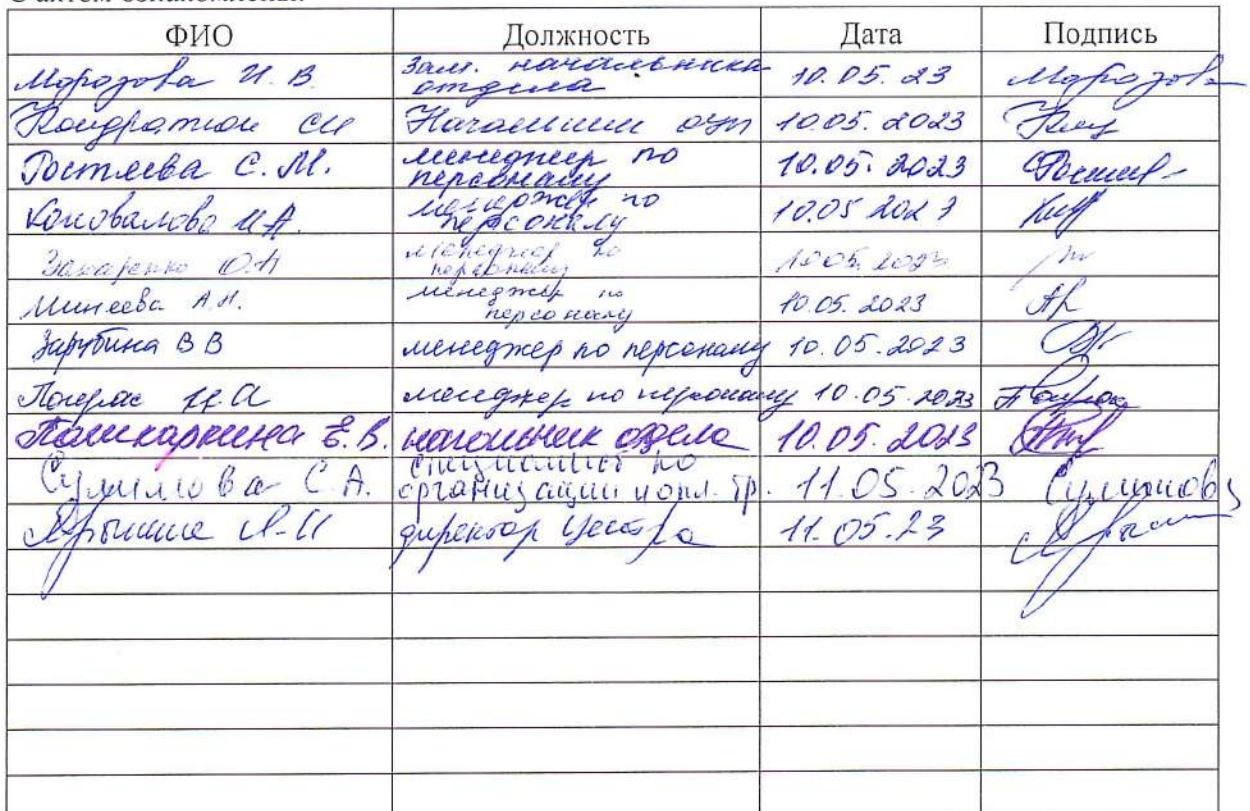 ФИО Должность Дата Подпись
Морозова И. В. Зам. начальника отдела 10.05.23 Морозова
Кондратюк СИ Начальник ОУП 10.05.2023
Ростяева С. М. менеджер по персоналу 10.05.2023
Коновалова И.А. менеджер по персоналу 10.05 2023
Захаренко О.Н менеджер по персоналу 10.05.2023
Минеева А.Н. менеджер по персоналу 10.05.2023
Зарубина В В менеджер по персоналу 10.05.2023
менеджер по персоналу 10.05.2023
Пашкаркина Е.В. начальник отдела 10.05.2023
Сулимова С.А. специалист по организации и опл. тр. 11.05.2023 Сулимова
директор Центра 11.05.23